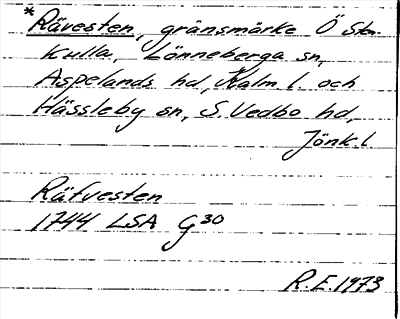 *Rävesten, gränsmärke Ö Sten-
Kulla, Lönneberga sn,
Aspelands hd, Kalm l. och
Hässleby sn, S. Vedbo hd,
Jönk. l
Räfvesten
1744 LSA G30
R.E. 1973